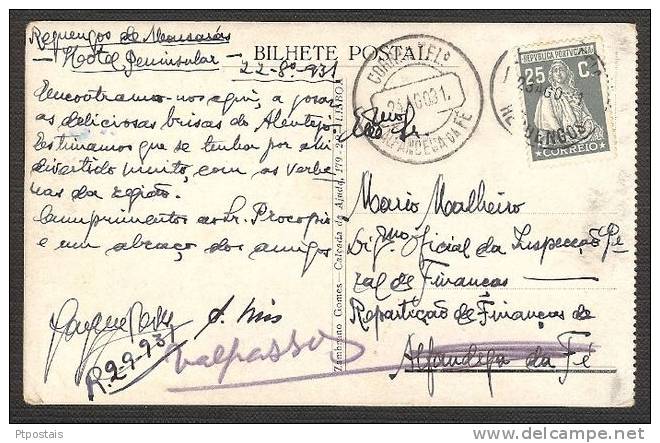 Reguengos de Monsarás
— Hotel Peninsular —
22-8º-931
BILHETE POSTAL
Encontramo-nos aqui, a gosar
as deliciosas brisas do Alentejo.
Estimamos que se tenha por ahi
divertido muito, com as verbe-
nas da região.
Cumprimentos ao Sr. Procopio
e um abraço dos amigos
R. 2-9-931
Valpassos
Zambrano Gomes - Calçada da Ajuda, 179 - LISBOA
CORREIO TELº
23 AGO 31
ALFANDEGA DA FÉ
REPUBLICA PORTUGUESA
25 C.
CORREIO
AGO
REGUENGOS
Exmo
Snr.
Mario Malheiro
Digmo Oficial da Inspecção Ge
ral de Finanças —
Repartição de Finanças de
Alfandega da Fé
Ptpostais
delcampe.net